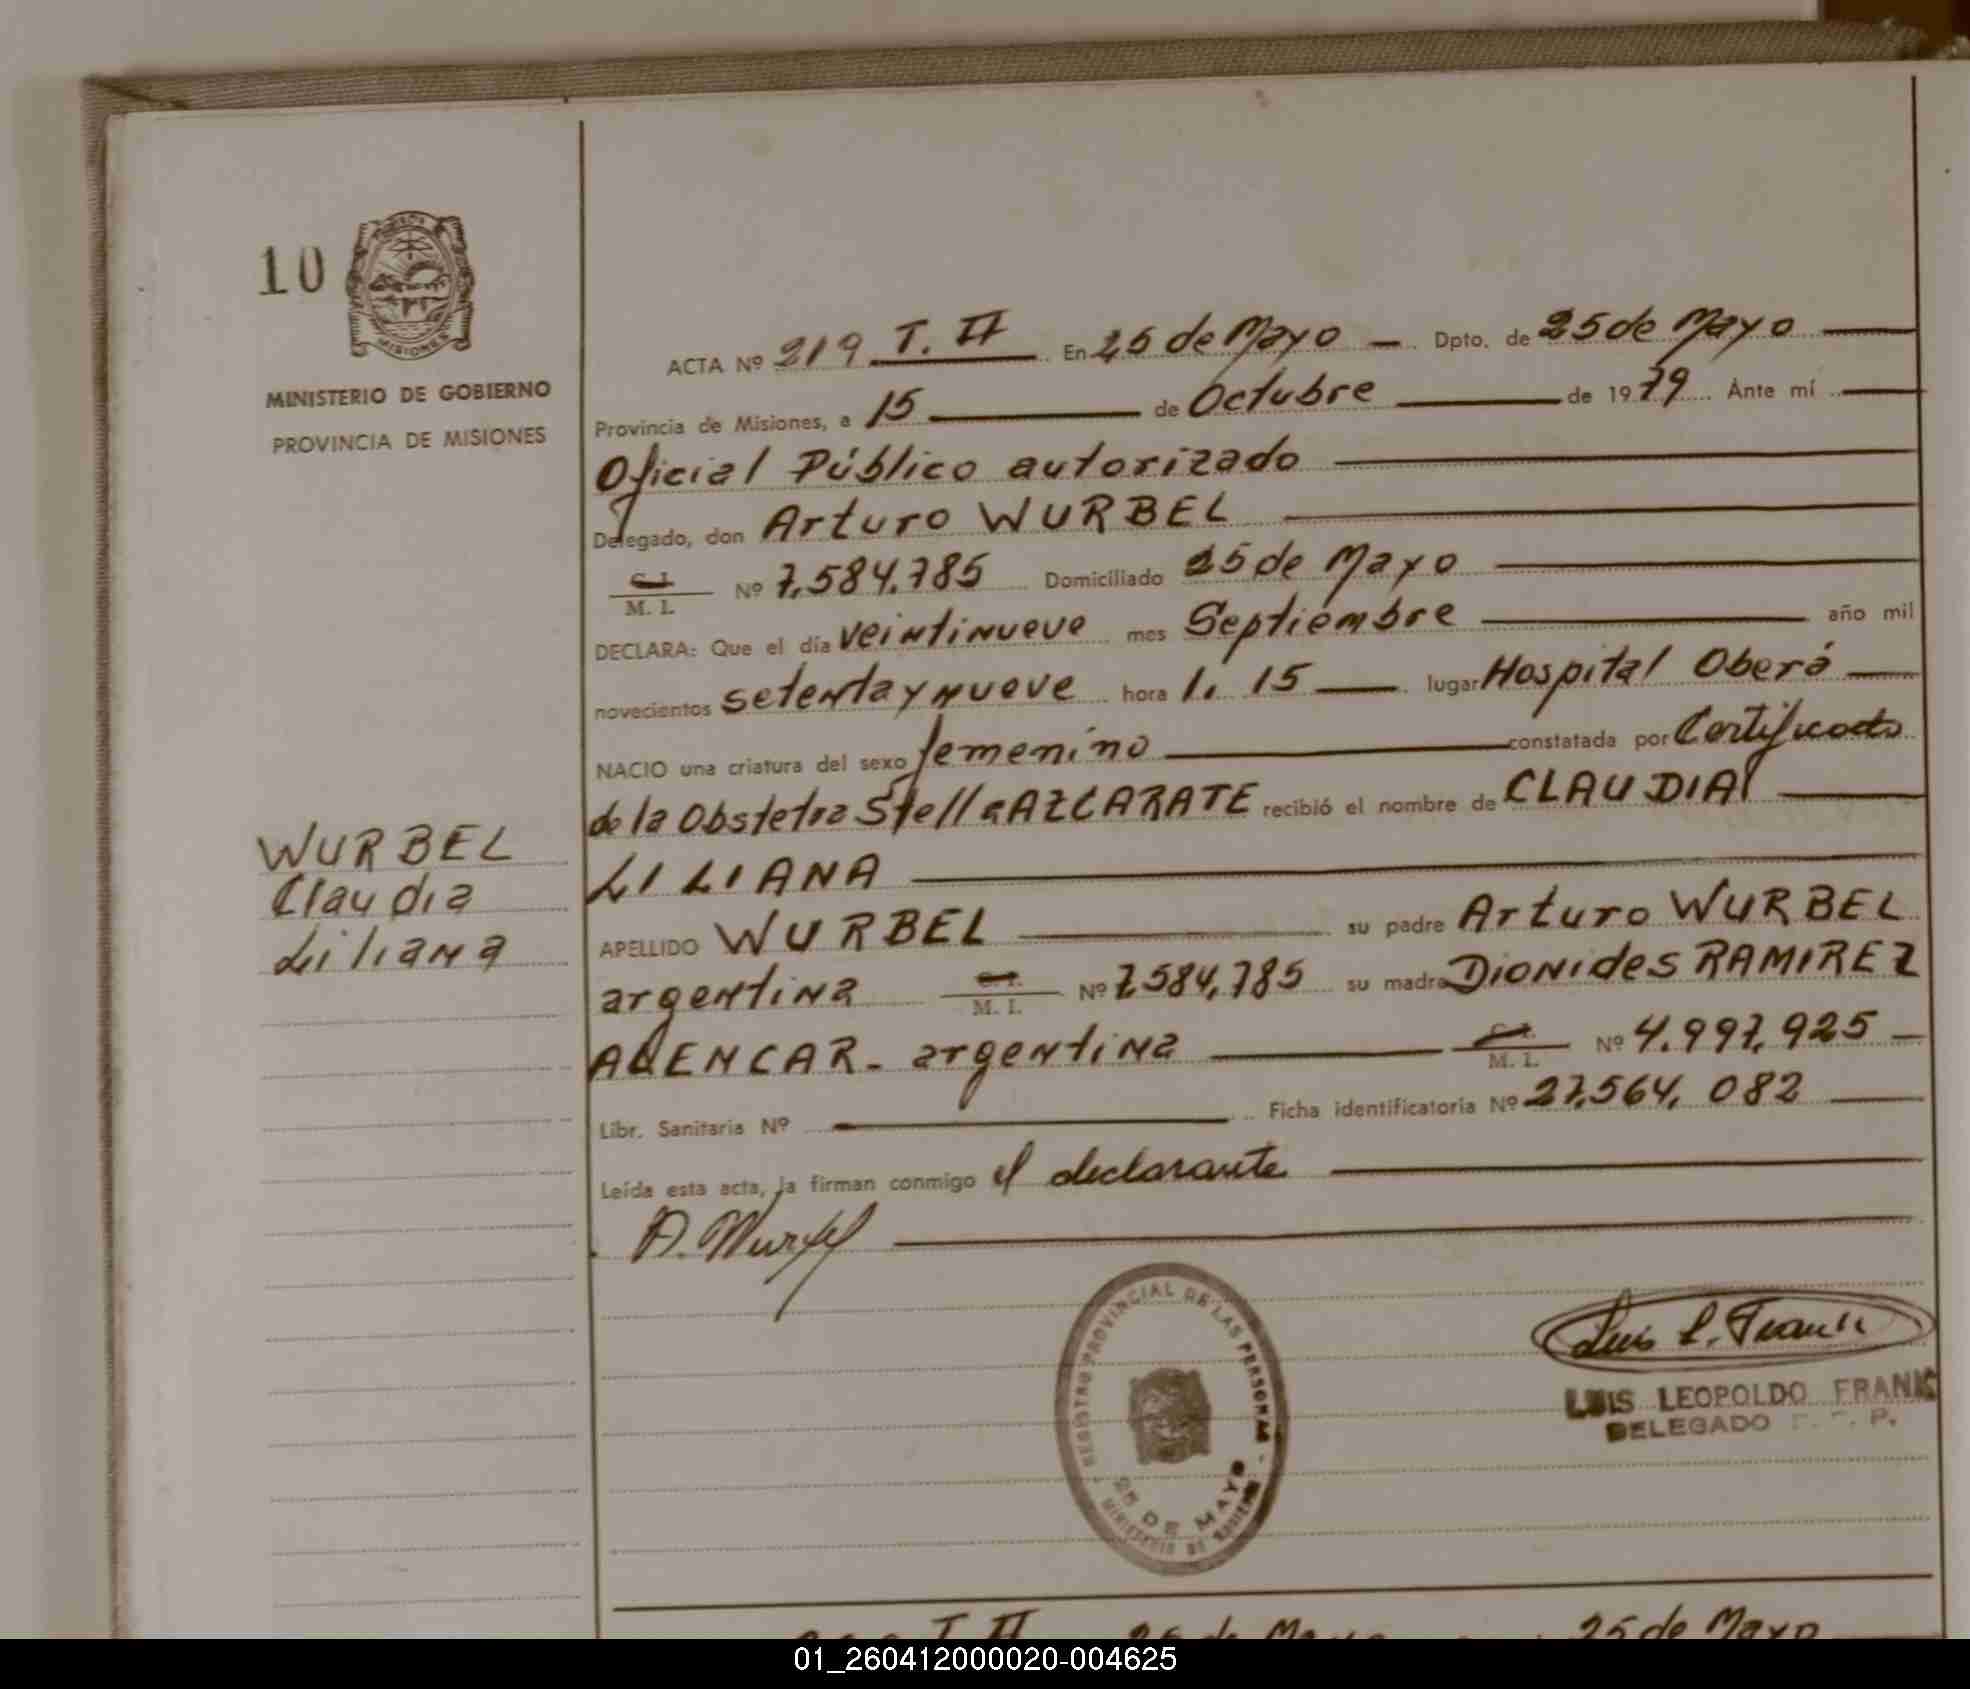 10
MISIONES
MINISTERIO DE GOBIERNO
PROVINCIA DE MISIONES
WURBEL
Claudia
Liliana
ACTA Nº 219 T. II En 25 de Mayo — Dpto. de 25 de Mayo
Provincia de Misiones, a 15 de Octubre de 1979 Ante mí
Oficial Público autorizado
Delegado, don Arturo WURBEL
C. I. / M. I. Nº 7.584.785 Domiciliado 25 de Mayo
DECLARA: Que el día veintinueve mes Septiembre año mil
novecientos setenta y nueve hora 1. 15 lugar Hospital Oberá
NACIO una criatura del sexo femenino constatada por Certificado
de la Obstetra Stella AZCARATE recibió el nombre de CLAUDIA
LILIANA
APELLIDO WURBEL su padre Arturo WURBEL
argentina C. I. / M. I. Nº 7.584.785 su madre Dionides RAMIREZ
ALENCAR - argentina C. I. / M. I. Nº 4.997.925
Libr. Sanitaria Nº Ficha identificatoria Nº 27.564.082
Leída esta acta, la firman conmigo el declarante
A. Wurbel
REGISTRO PROVINCIAL DE LAS PERSONAS
25 DE MAYO
MINISTERIO DE
Luis L. Frank
LUIS LEOPOLDO FRANK
DELEGADO
T. II 25 de Mayo 25 de Mayo
01_260412000020-004625